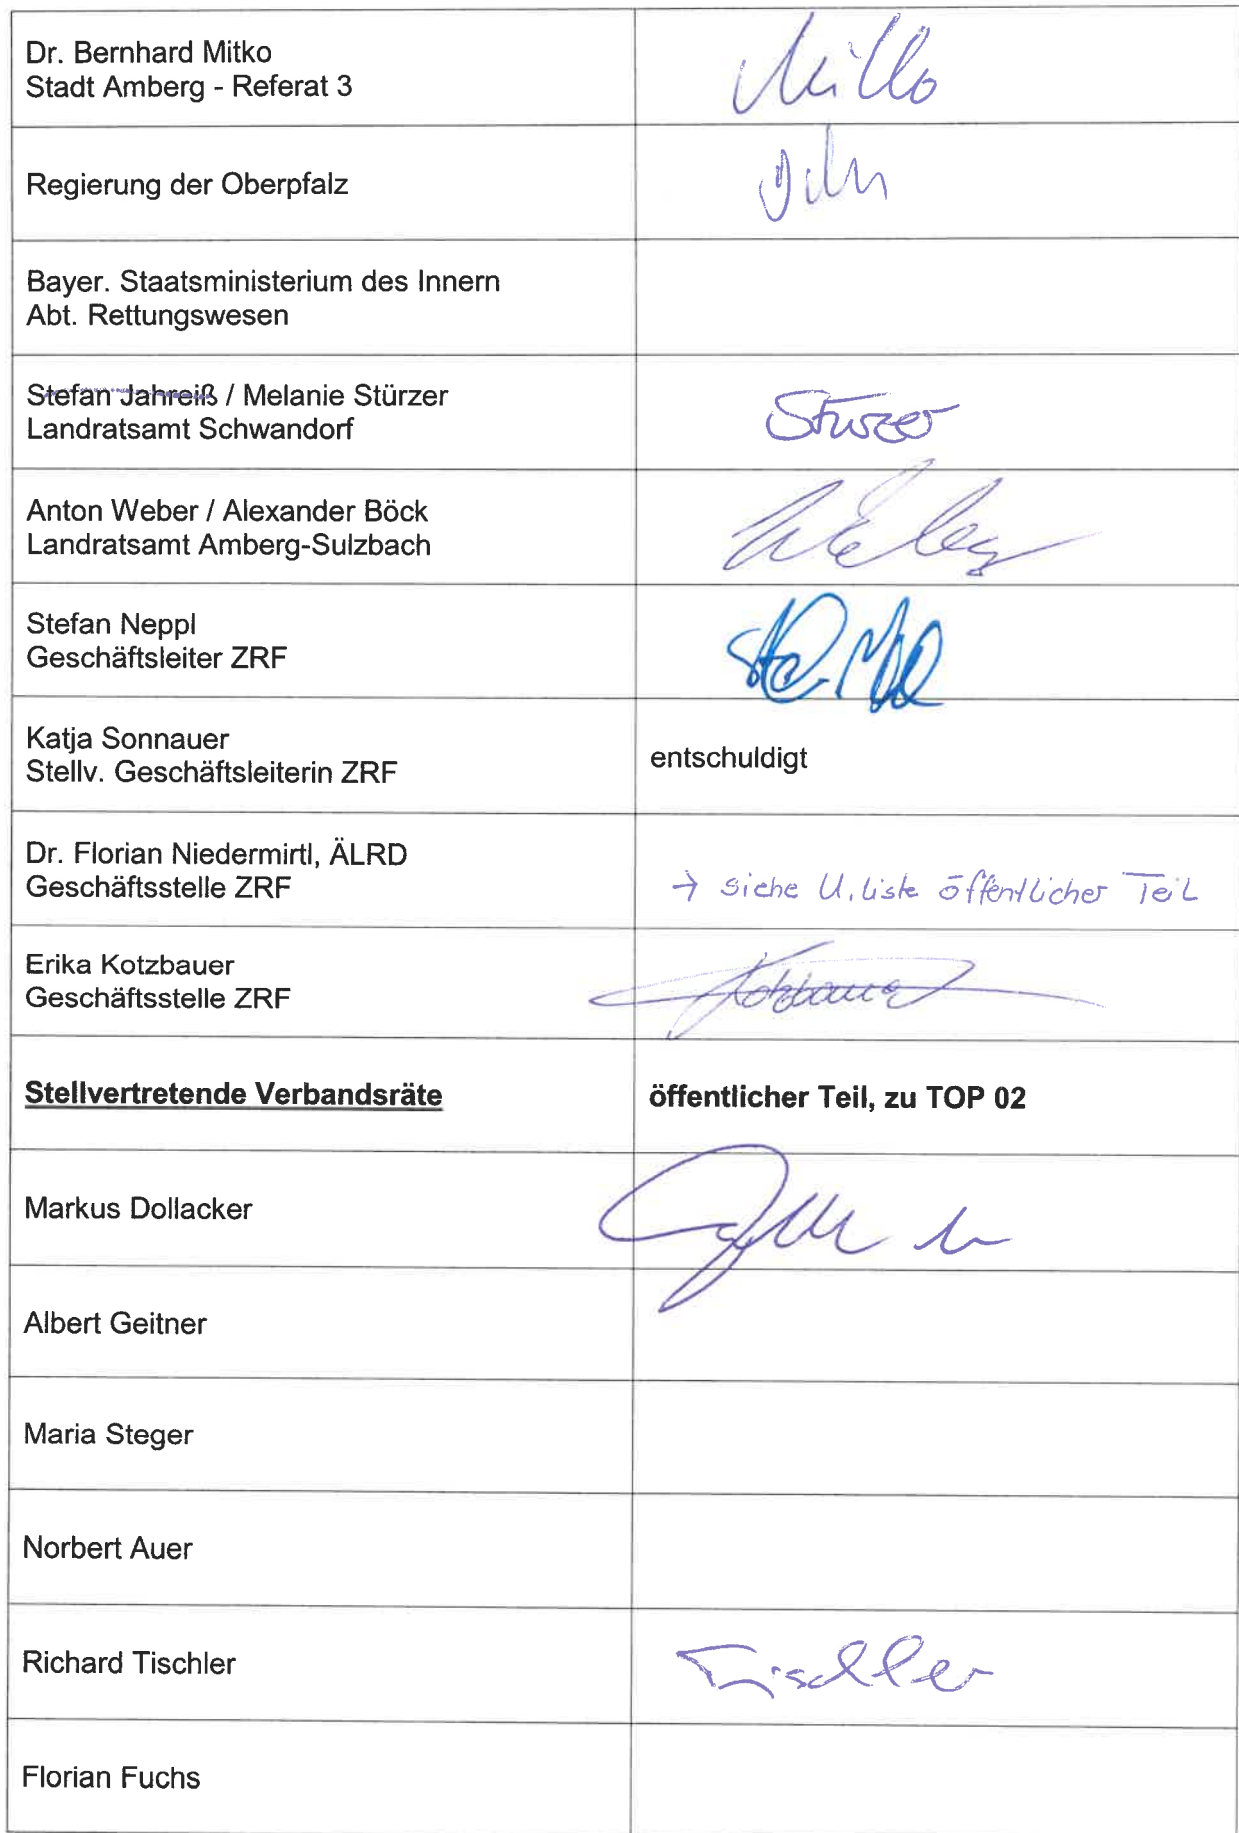 Dr. Bernhard Mitko
Stadt Amberg - Referat 3
Mitko
Regierung der Oberpfalz
Bayer. Staatsministerium des Innern
Abt. Rettungswesen
Stefan Jahreiß / Melanie Stürzer
Landratsamt Schwandorf
Stürzer
Anton Weber / Alexander Böck
Landratsamt Amberg-Sulzbach
Weber
Stefan Neppl
Geschäftsleiter ZRF
Katja Sonnauer
Stellv. Geschäftsleiterin ZRF
entschuldigt
Dr. Florian Niedermirtl, ÄLRD
Geschäftsstelle ZRF
→ siehe U.liste öffentlicher Teil
Erika Kotzbauer
Geschäftsstelle ZRF
Kotzbauer
Stellvertretende Verbandsräte
öffentlicher Teil, zu TOP 02
Markus Dollacker
Albert Geitner
Maria Steger
Norbert Auer
Richard Tischler
Tischler
Florian Fuchs